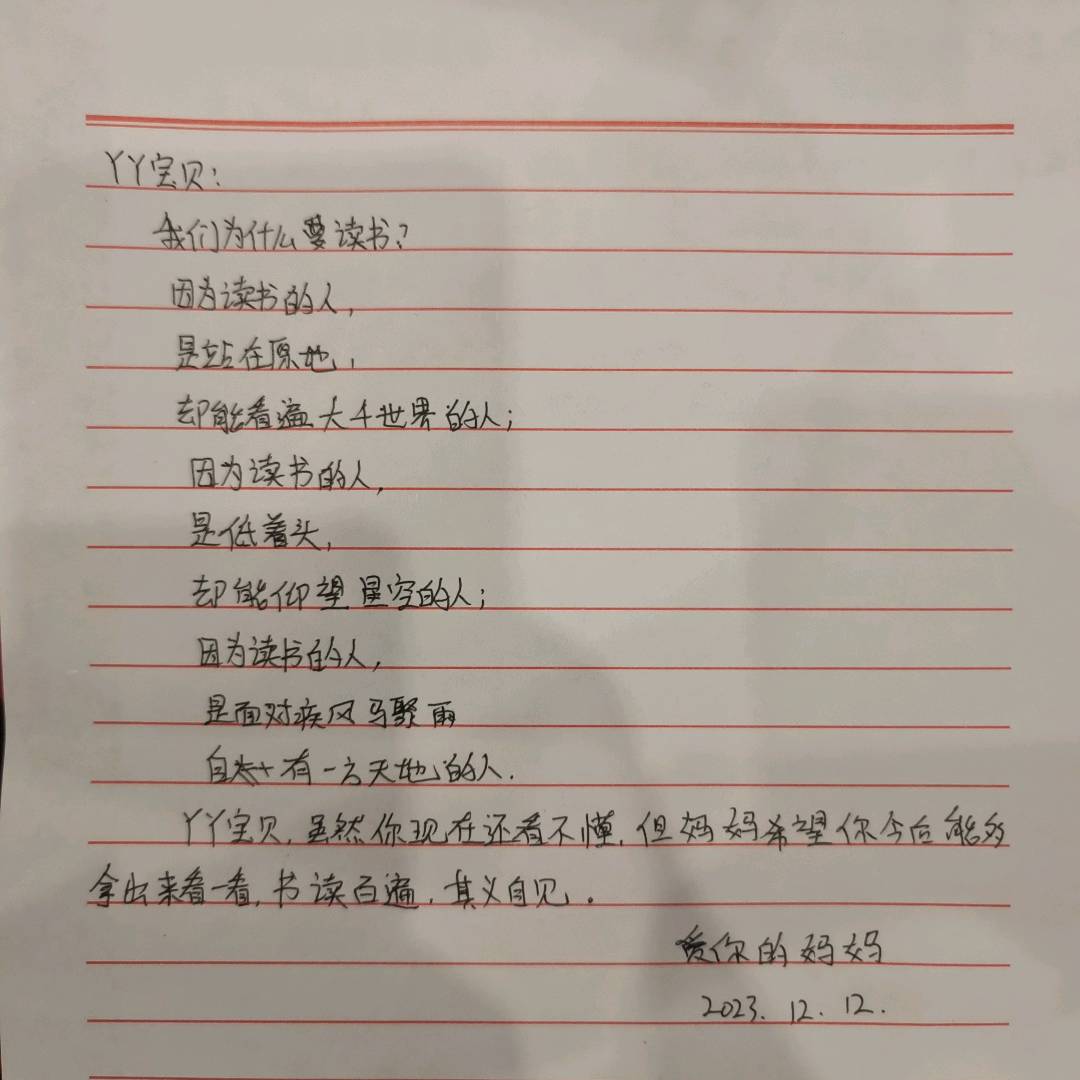 丫丫宝贝：
我们为什么要读书？
因为读书的人，
是站在原地，
却能看遍大千世界的人；
因为读书的人，
是低着头，
却能仰望星空的人；
因为读书的人，
是面对疾风骤雨
自然有一方天地的人.
丫丫宝贝，虽然你现在还看不懂，但妈妈希望你今后能多
拿出来看一看，书读百遍，其义自见。
爱你的妈妈
2023.12.12.